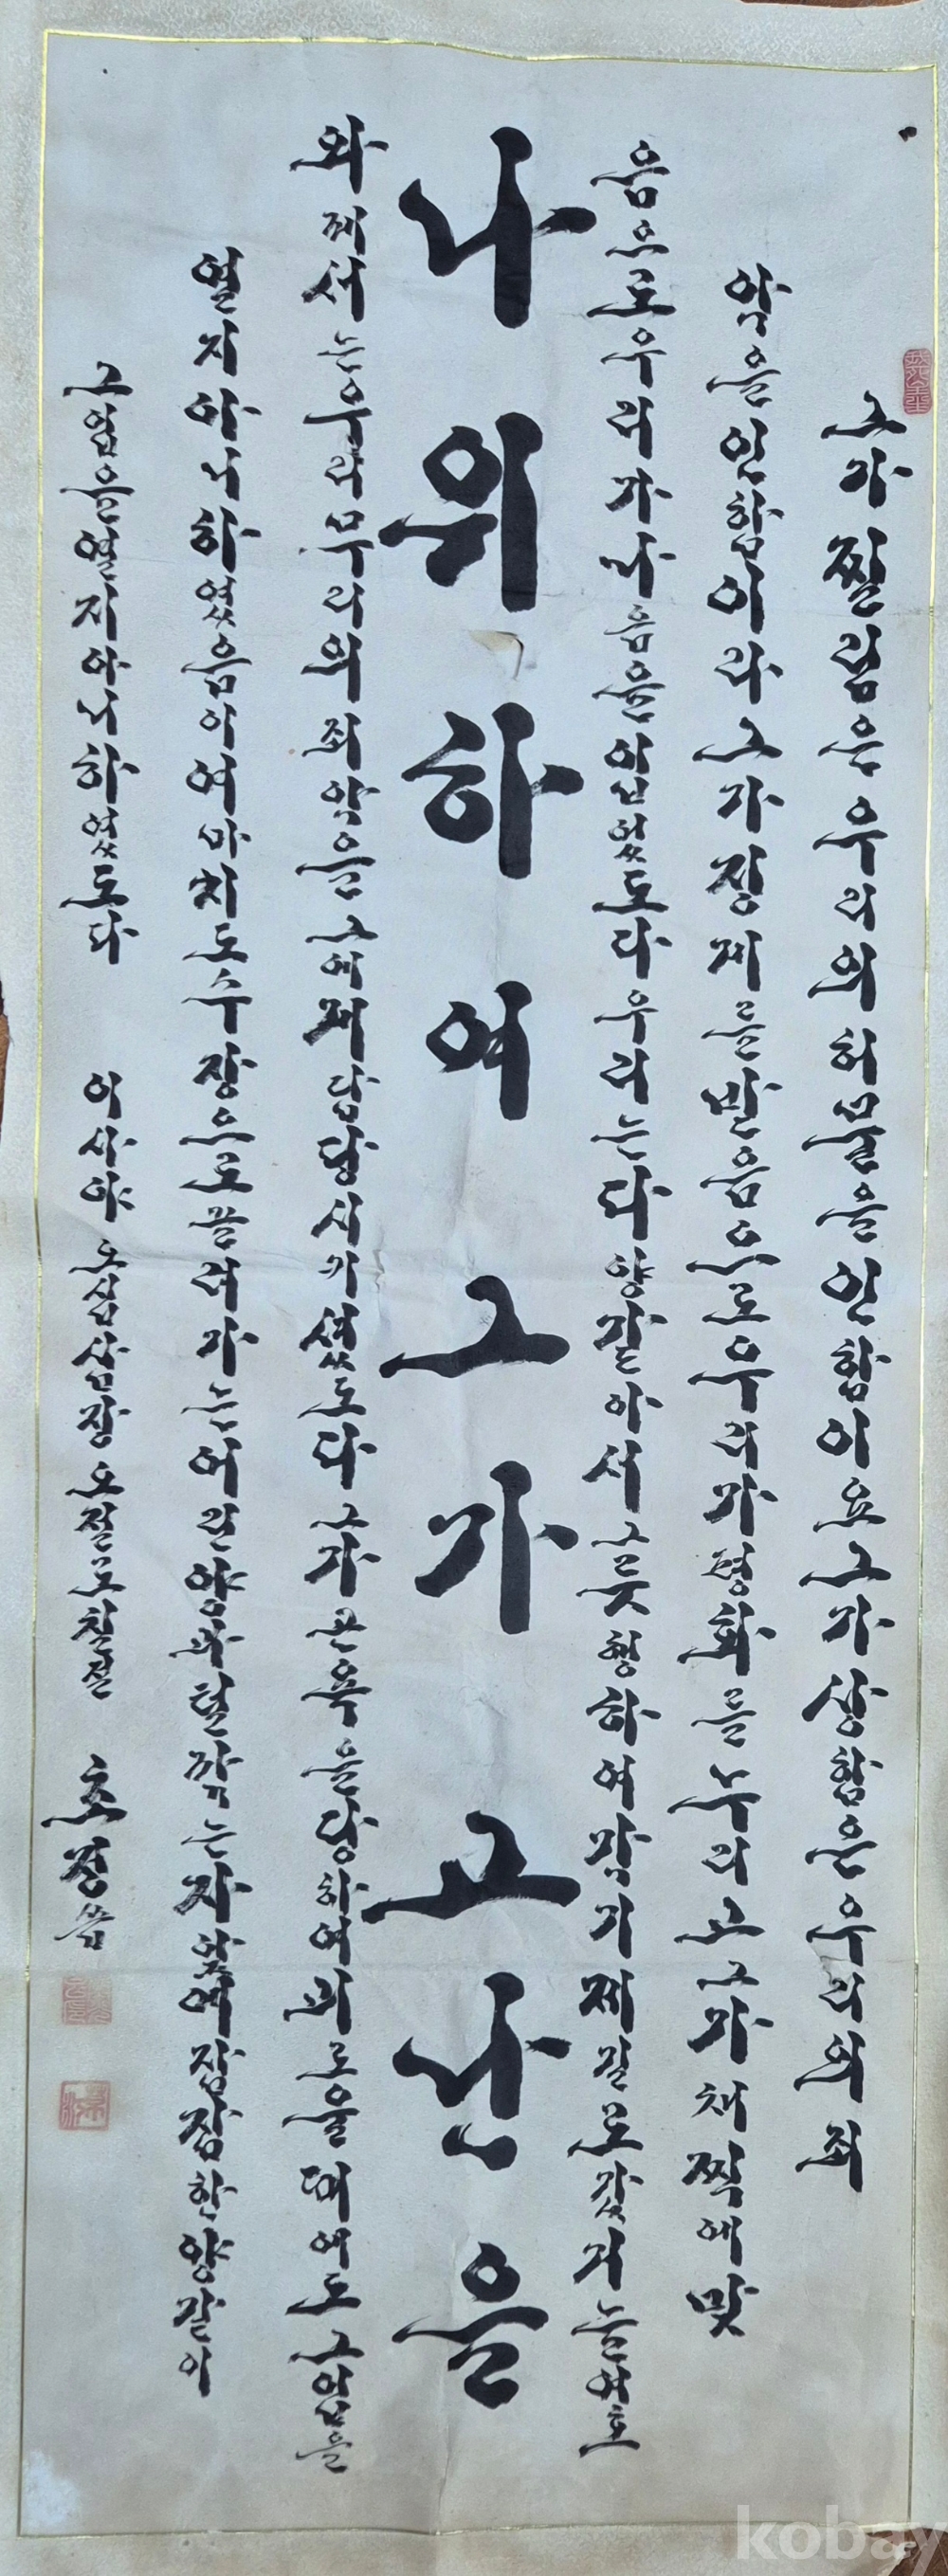 그가 찔림은 우리의 허물을 인함이요 그가 상함은 우리의 죄
악을 인함이라 그가 징계를 받음으로 우리가 평화를 누리고 그가 채찍에 맞
음으로 우리가 나음을 입었도다 우리는 다 양 같아서 그릇 행하여 각기 제 길로 갔거늘 여호
나 위하여 그가 고난을
와께서는 우리 무리의 죄악을 그에게 담당시키셨도다 그가 곤욕을 당하여 괴로울 때에도 그 입을
열지 아니하였음이여 마치 도수장으로 끌려가는 어린 양과 털 깎는 자 앞에 잠잠한 양 같이
그 입을 열지 아니하였도다 이사야 오십삼장 오절로 칠절 초정 씀
kobay